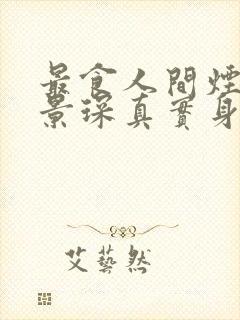 最食人間煙
景琛真實身
艾藝然